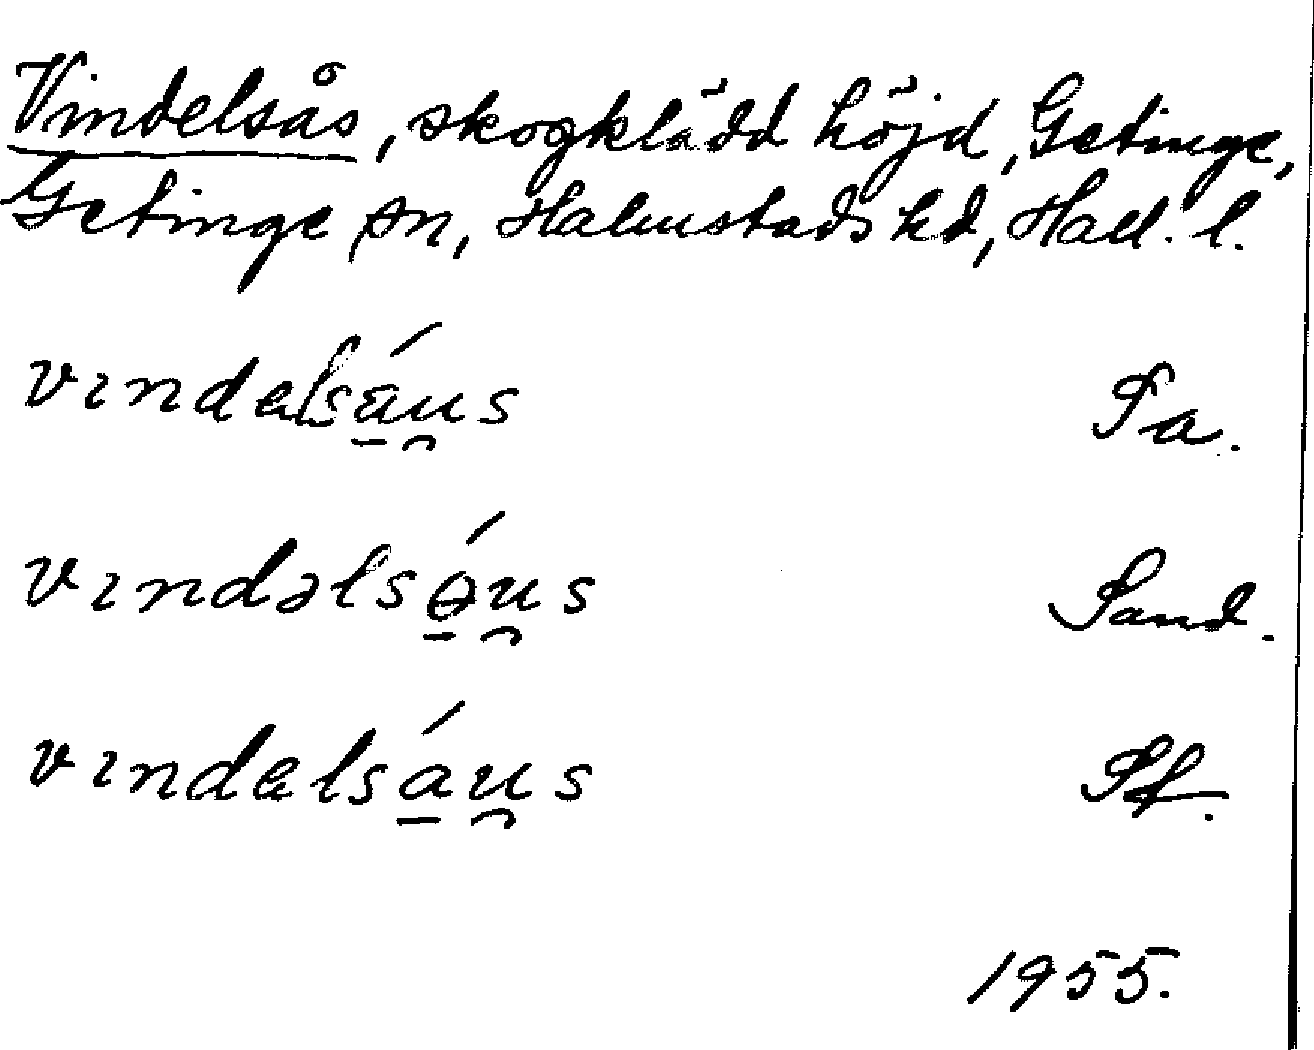 Vindelsås, skogklädd höjd, Getinge,
Getinge sn, Halmstads hd, Hall. l.
vındalsa̱ú̯s Pa.
vındəlsɵ̱ú̯s Sand.
vındalsa̱ú̯s Sf.
1955.